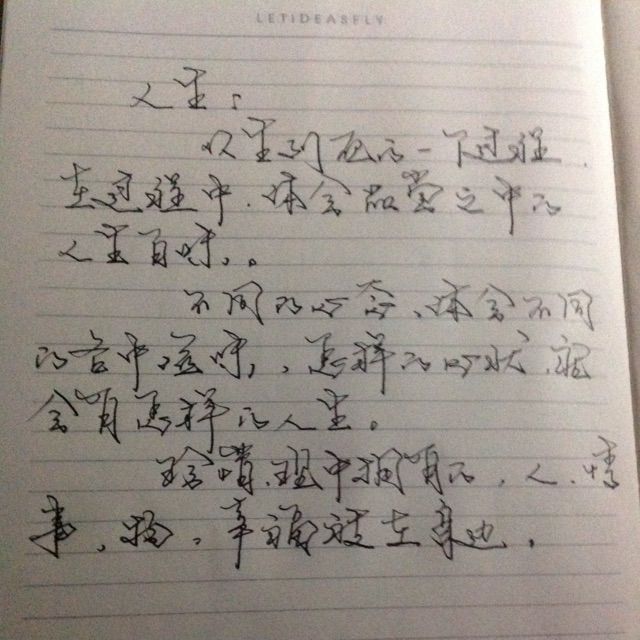 LETIDEASFLY
人生：
从生到死的一个过程，
在过程中，体会品尝之中的
人生百味。
不同的心态，体会不同
的各中滋味，怎样的心状，就
会有怎样的人生。
珍惜现中拥有的，人、情
事、物，幸福就在身边。